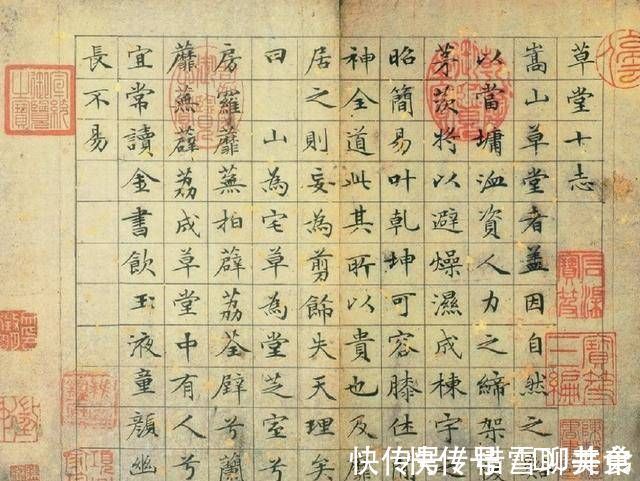 草堂十志
嵩山草堂者盖因自然之
以當墉洫資人力之締架
茅茨将以避燥濕成棟宇之
昭簡易叶乾坤可容膝休
神全道此其所以貴也及靡
居之則妄為剪飾失天理矣
曰 山為宅草為堂芝室兮
房羅蘼蕪拍薜荔荃壁兮蘭
蘼蕪薜荔成草堂中有人兮
宜常讀金書飲玉液童顏幽
長不易